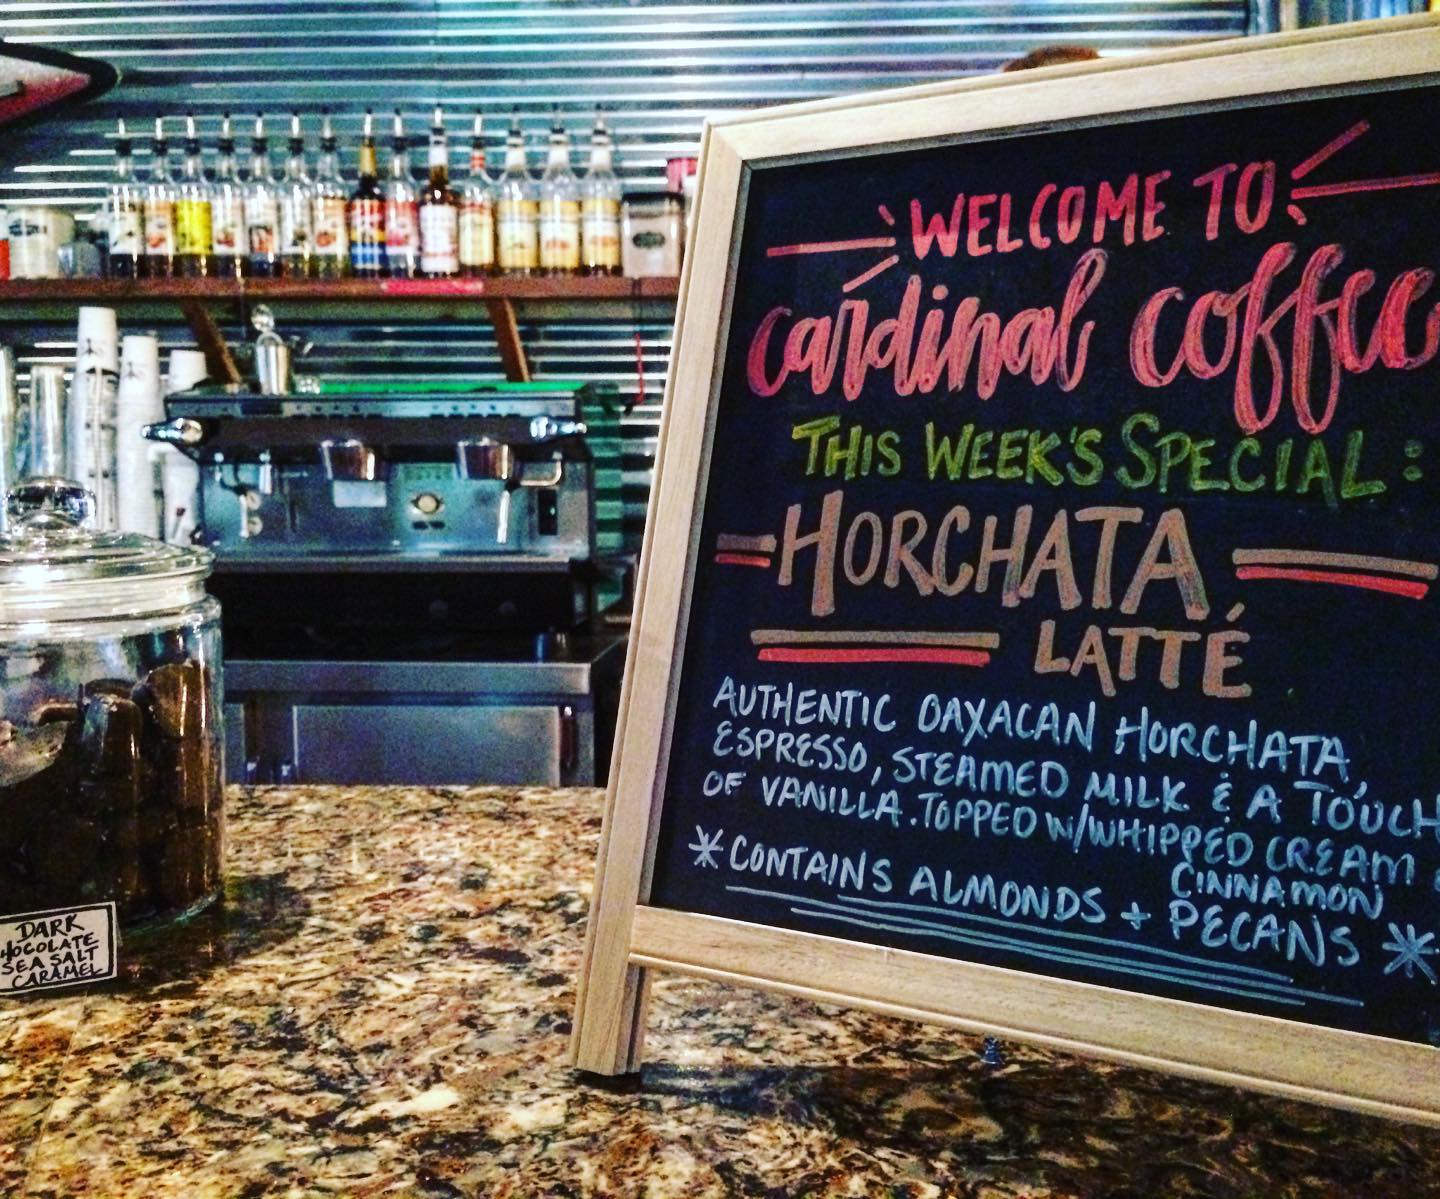 WELCOME TO
cardinal coffee
THIS WEEK'S SPECIAL:
HORCHATA
LATTÉ
AUTHENTIC OAXACAN HORCHATA,
ESPRESSO, STEAMED MILK & A TOUCH
OF VANILLA. TOPPED W/WHIPPED CREAM &
CINNAMON
*CONTAINS ALMONDS + PECANS*
DARK
HOCOLATE
SEA SALT
CARAMEL